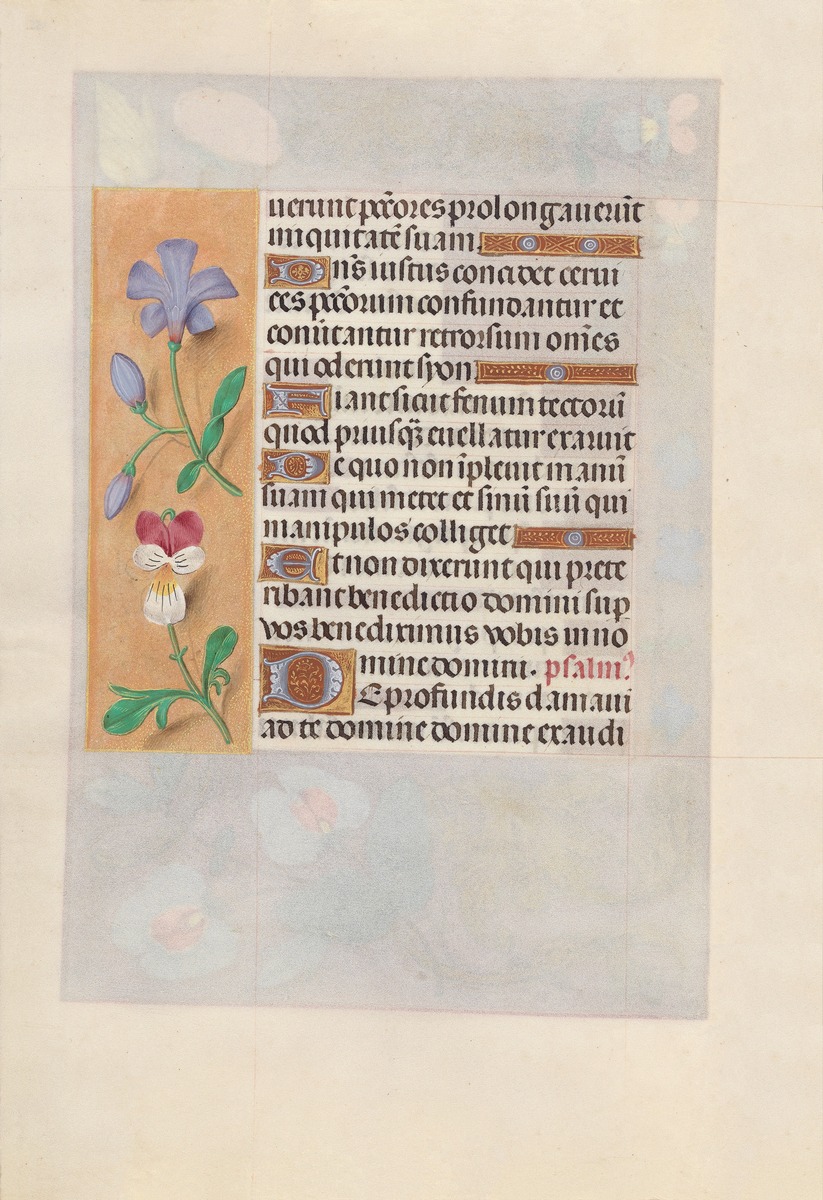 uerunt pctores prolongauerūt
iniquitatē suam
Dn̄s iustus concidet cerui
ces pctorum confundantur et
conūtantur retrorsum omēs
qui oderunt syon
Fiant sicut fenum tectorū
quod priusqȝ euellatur exaruit
De quo non īpleuit manū
suam qui metet et sinū suū qui
manipulos colliget
Et non dixerunt qui prete
ribant benedictio domini sup
vos benediximus vobis in no
mine domini. psalm⁹
De profundis clamaui
ad te domine domine exaudi